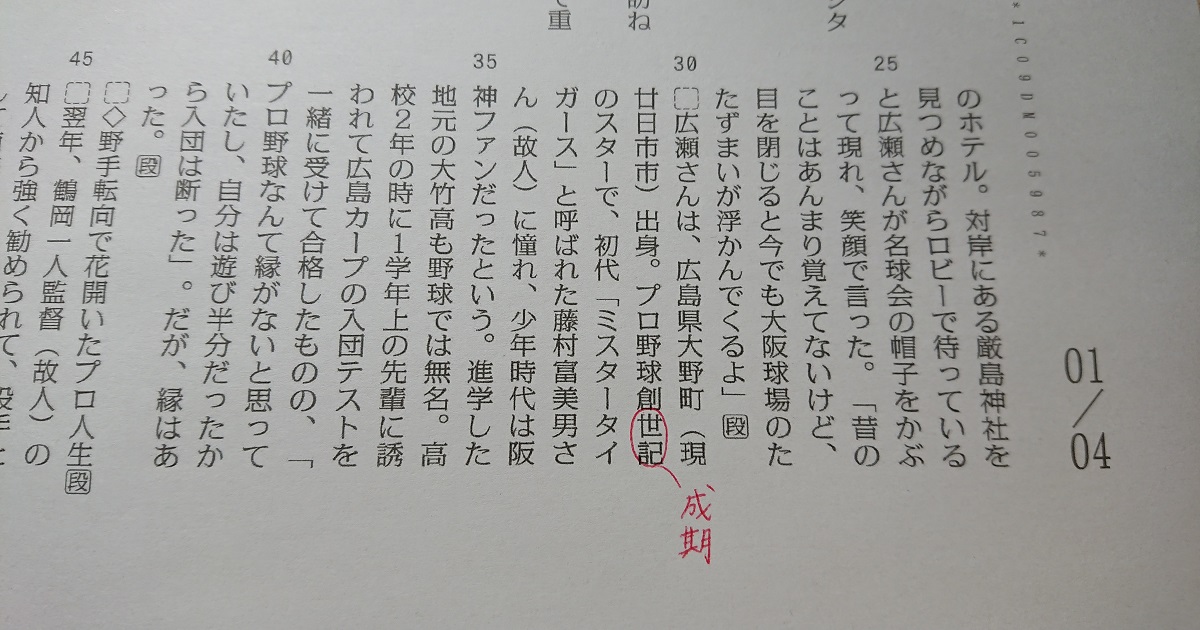 *1C09DM005987*
01/04
ンタ
訪ね
て重
25
30
35
40
45
のホテル。対岸にある厳島神社を
見つめながらロビーで待っている
と広瀬さんが名球会の帽子をかぶ
って現れ、笑顔で言った。「昔の
ことはあんまり覚えてないけど、
目を閉じると今でも大阪球場のた
たずまいが浮かんでくるよ」段
広瀬さんは、広島県大野町（現
廿日市市）出身。プロ野球創世記
成期
のスターで、初代「ミスタータイ
ガース」と呼ばれた藤村富美男さ
ん（故人）に憧れ、少年時代は阪
神ファンだったという。進学した
地元の大竹高も野球では無名。高
校２年の時に１学年上の先輩に誘
われて広島カープの入団テストを
一緒に受けて合格したものの、「
プロ野球なんて縁がないと思って
いたし、自分は遊び半分だったか
ら入団は断った」。だが、縁はあ
った。段
◇野手転向で花開いたプロ人生段
翌年、鶴岡一人監督（故人）の
知人から強く勧められて、投手と